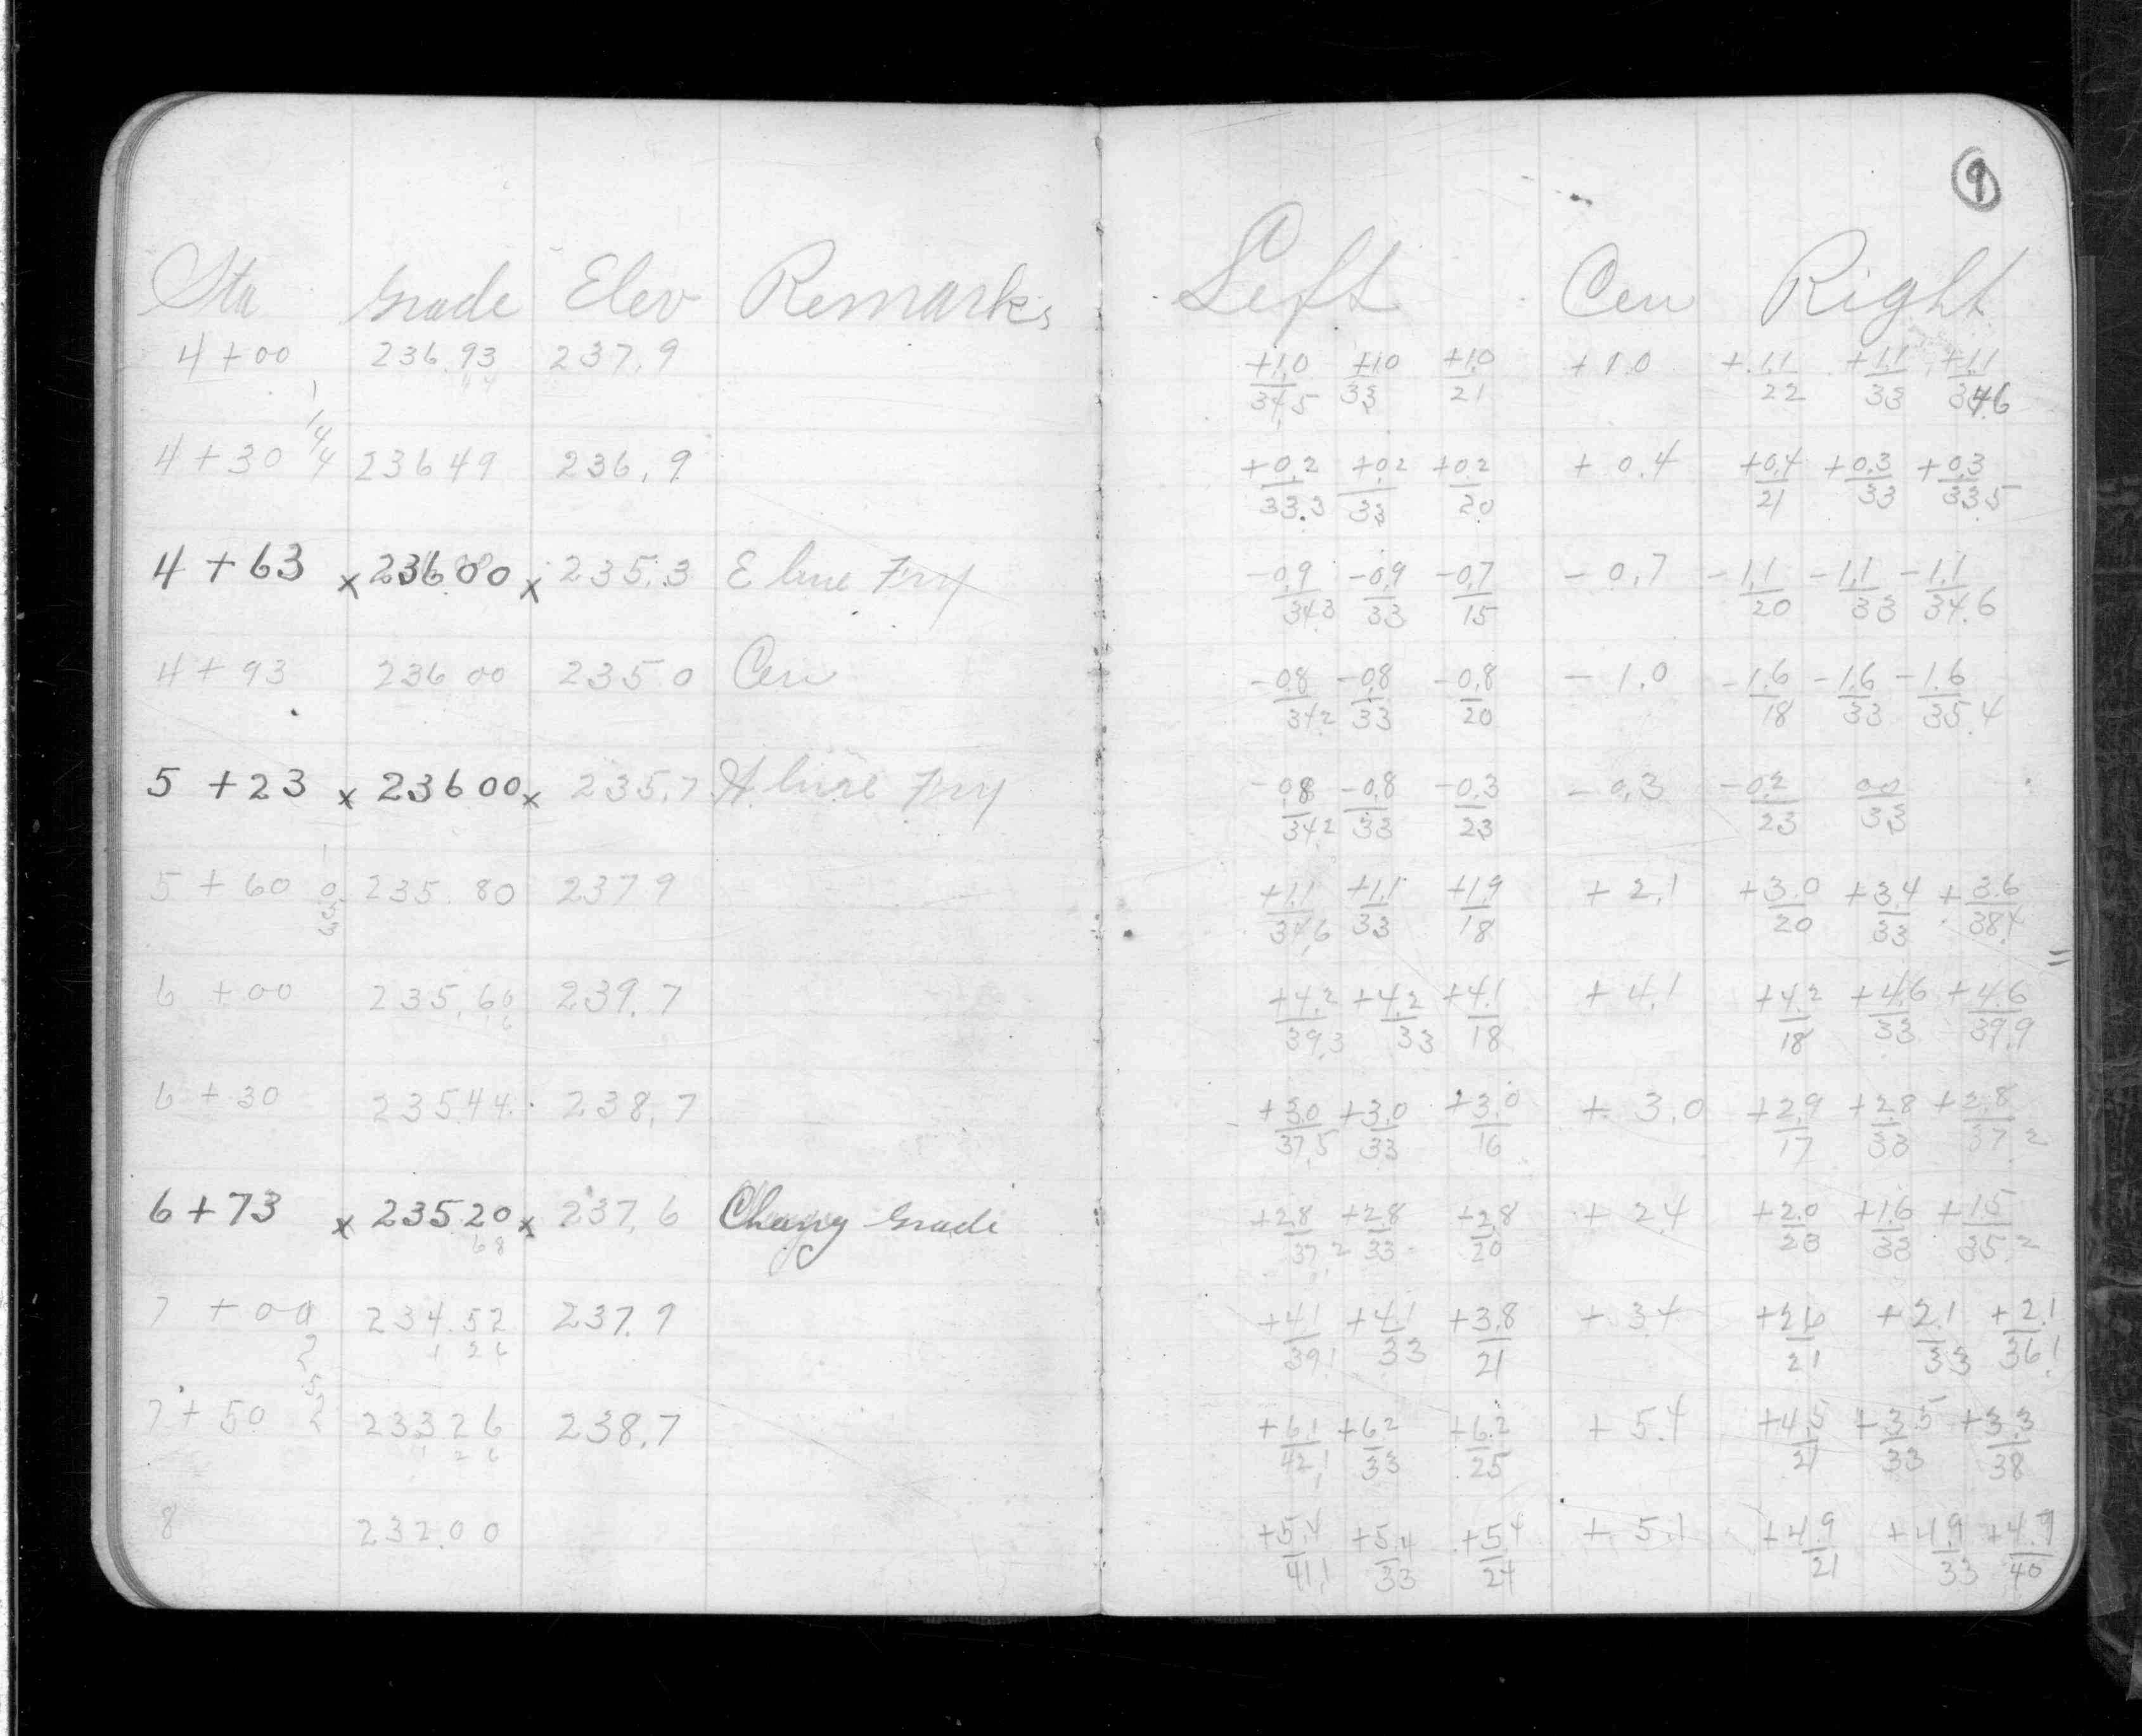 9
Sta Grade Elev Remarks Left Cen Right
4+00 236.93 237.9 +1.0/34.5 +1.0/33 +1.0/21 +1.0 +1.1/22 +1.1/33 +1.1/34.6
4+30 236 49 236.9 +0.2/33.3 +0.2/33 +0.2/20 +0.4 +0.4/21 +0.3/33 +0.3/33.5
4+63 x 236 00 x 235.3 E line Fry -0.9/34.3 -0.9/33 -0.7/15 -0.7 -1.1/20 -1.1/33 -1.1/34.6
4+93 236 00 235.0 Cen -0.8/34.2 -0.8/33 -0.8/20 -1.0 -1.6/18 -1.6/33 -1.6/35.4
5+23 x 236 00 x 235.7 line Fry -0.8/34.2 -0.8/33 -0.3/23 -0.3 -0.2/23 0.0/33
5+60 235.80 237.9 +1.1/34.6 +1.1/33 +1.9/18 +2.1 +3.0/20 +3.4/33 +3.6/38.4
6+00 235.60 239.7 +4.2/39.3 +4.2/33 +4.1/18 +4.1 +4.2/18 +4.6/33 +4.6/39.9
6+30 235.44 238.7 +3.0/37.5 +3.0/33 +3.0/16 +3.0 +2.9/17 +2.8/33 +2.8/37.2
6+73 x 235.20 x 237.6 Chang Grade +2.8/37.2 +2.8/33 +2.8/20 +2.4 +2.0/23 +1.6/33 +1.5/35.2
7+00 234.52 237.9 +4.1/39.1 +4.1/33 +3.8/21 +3.4 +2.6/21 +2.1/33 +2.1/36.1
7+50 233 26 238.7 +6.1/42.1 +6.2/33 +6.2/25 +5.4 +4.5/21 +3.5/33 +3.3/38
8 232.00 +5.4/41.1 +5.4/33 +5.4/24 +5.1 +4.9/21 +4.9/33 +4.9/40